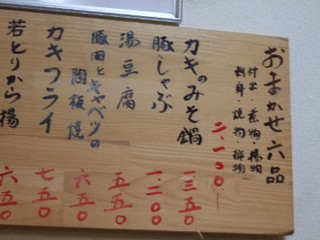 おまかせ六品
付出・煮物・揚物
刺身・焼物・酢物
二.一〇〇
カキのみそ鍋
一三五〇
豚しゃぶ
一.二〇〇
湯豆腐
五五〇
豚肉とキャベツの
陶板焼
六五〇
カキフライ
七五〇
若とりから揚
六五〇